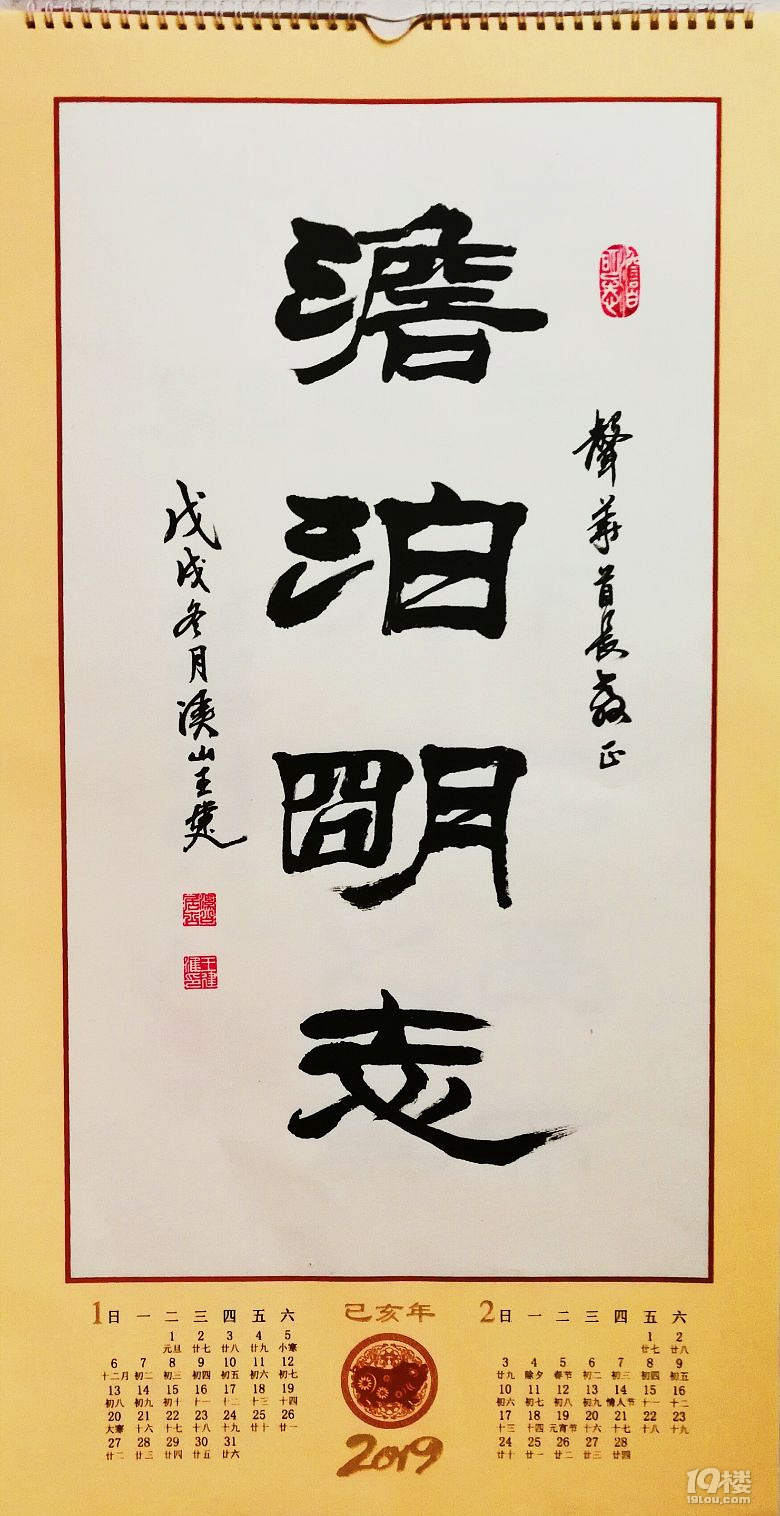 聲華首長教正
澹
泊
朙
志
戊戌冬月
山王
1
日 一 二 三 四 五 六
1 2 3 4 5
元旦 廿七 廿八 廿九 小寒
6 7 8 9 10 11 12
十二月 初二 初三 初四 初五 初六 初七
13 14 15 16 17 18 19
初八 初九 初十 十一 十二 十三 十四
20 21 22 23 24 25 26
大寒 十六 十七 十八 十九 廿十 廿一
27 28 29 30 31
廿二 廿三 廿四 廿五 廿六
己亥年
2019
2
日 一 二 三 四 五 六
1 2
廿七 廿八
3 4 5 6 7 8 9
廿九 除夕 春节 初二 初三 初四 初五
10 11 12 13 14 15 16
初六 初七 初八 初九 情人节 十一 十二
17 18 19 20 21 22 23
十三 十四 元宵节 十六 十七 十八 十九
24 25 26 27 28
廿十 廿一 廿二 廿三 廿四
19楼
19lou.com